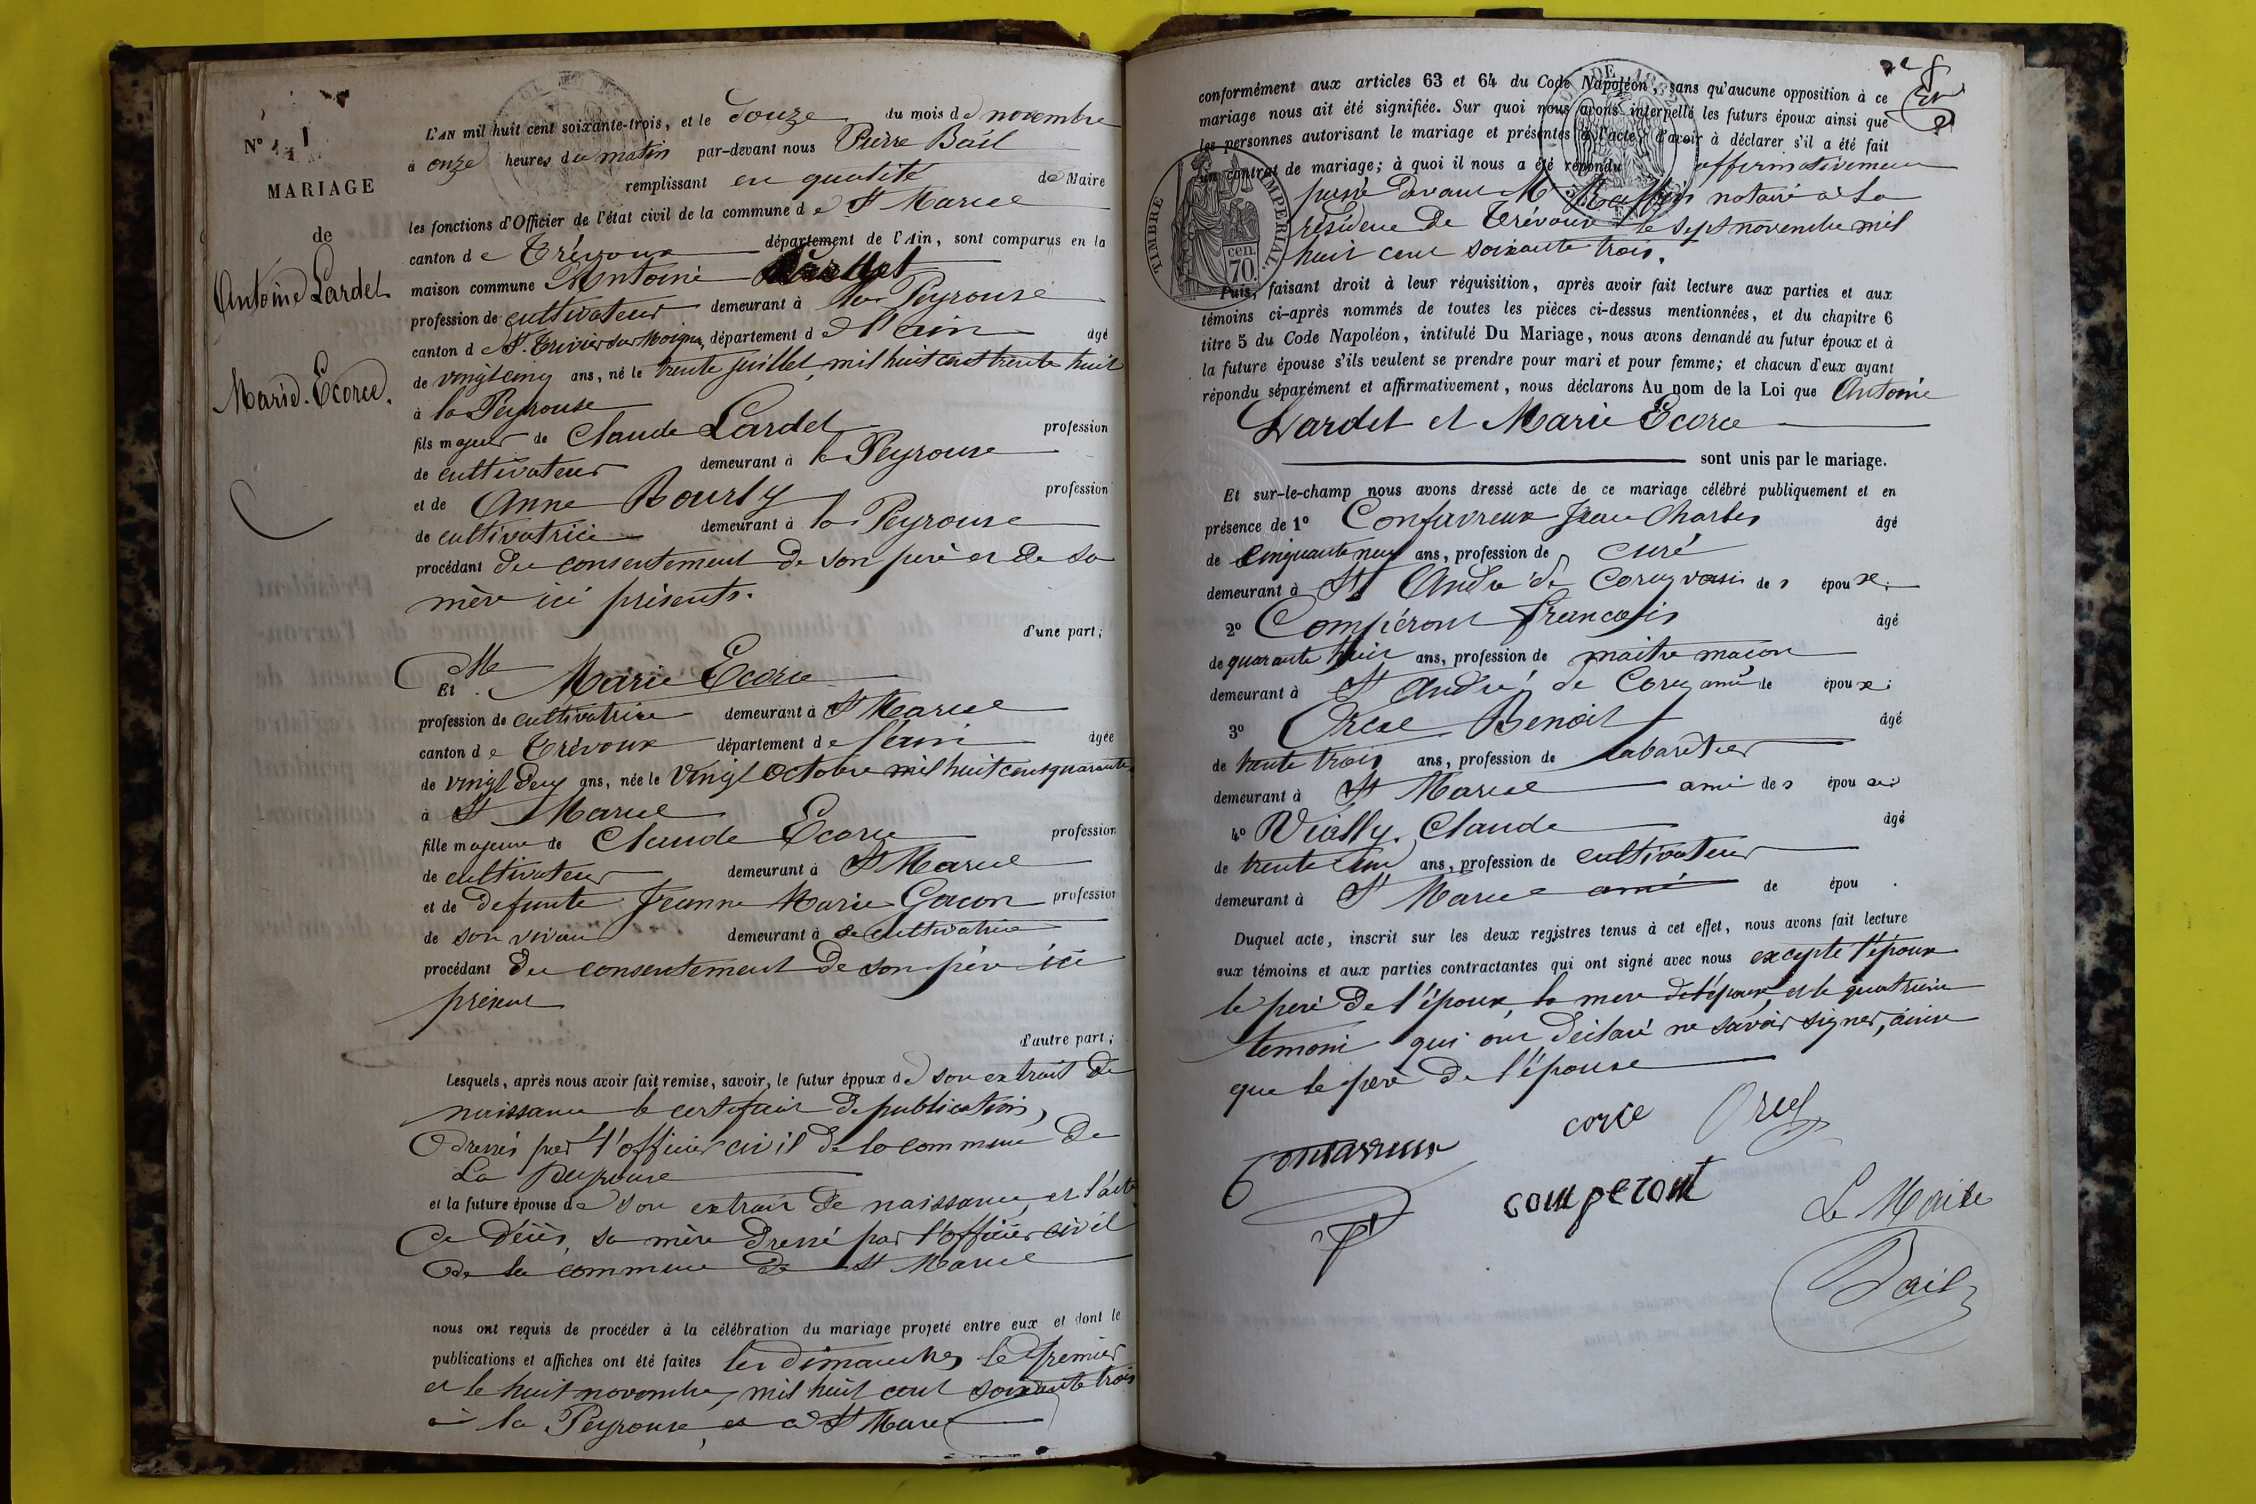 N° 1
MARIAGE
de
Antoine Lardet
Marie Ecorce.
L'AN mil huit cent soixante-trois, et le Douze du mois de novembre
à onze heures du matin par-devant nous Pierre Bail
remplissant en qualité de Maire
les fonctions d'Officier de l'état civil de la commune de St Marcel
canton de Trévoux département de l'Ain, sont comparus en la
maison commune Antoine Lardet
profession de cultivateur demeurant à la Peyrouse
canton de St. Trivier sur Moignans département de l'ain âgé
de vingt cinq ans, né le trente juillet mil huit cent trente huit
à la Peyrouse
fils majeur de Claude Lardet profession
de cultivateur demeurant à la Peyrouse
et de Anne Bourly profession
de cultivatrice demeurant à la Peyrouse
procédant du consentement de son père et de sa
mère ici présents.
d'une part;
Et Mlle Marie Ecorce
profession de cultivatrice demeurant à St Marcel
canton de Trévoux département de l'ain âgée
de vingt deux ans, née le vingt octobre mil huit cent quarante
à St Marcel
fille majeure de Claude Ecorce profession
de cultivateur demeurant à St Marcel
et de defunte Jeanne Marie Gacon profession
de son vivant demeurant à de cultivatrice
procédant du consentement de son père ici
présent
d'autre part;
Lesquels, après nous avoir fait remise, savoir, le futur époux de son extrait de
naissance le certificat de publication,
dressés par l'officier civil de la commune de
La Peyrouse
et la future épouse de son extrait de naissance, et l'acte
de décès, sa mère dressé par l'officier civil
de la commune de St Marcel
nous ont requis de procéder à la célébration du mariage projeté entre eux et dont le
publications et affiches ont été faites les dimanches le premier
et le huit novembre, mil huit cent soixante trois
à la Peyrouse, et à St Marcel
conformément aux articles 63 et 64 du Code Napoléon, sans qu'aucune opposition à ce
mariage nous ait été signifiée. Sur quoi nous avons interpellé les futurs époux ainsi que
les personnes autorisant le mariage et présentes à l'acte, d'avoir à déclarer s'il a été fait
un contrat de mariage; à quoi il nous a été répondu affirmativement
passé devant Me notaire à la
résidence de Trévoux le sept novembre mil
huit cent soixante trois.
TIMBRE IMPERIAL
70 cen.
Puis, faisant droit à leur réquisition, après avoir fait lecture aux parties et aux
témoins ci-après nommés de toutes les pièces ci-dessus mentionnées, et du chapitre 6
titre 5 du Code Napoléon, intitulé Du Mariage, nous avons demandé au futur époux et à
la future épouse s'ils veulent se prendre pour mari et pour femme; et chacun d'eux ayant
répondu séparément et affirmativement, nous déclarons Au nom de la Loi que Antoine
Lardet et Marie Ecorce
sont unis par le mariage.
Et sur-le-champ nous avons dressé acte de ce mariage célébré publiquement et en
présence de 1° Confavreux Jean Charles âgé
de cinquante neuf ans, profession de curé
demeurant à St André de Corcy des époux.
2° Compéront François âgé
de quarante huit ans, profession de maitre maçon
demeurant à St André de Corcy ami de époux;
3° Orcel Benoit âgé
de trente trois ans, profession de cabaretier
demeurant à St Marcel ami des époux;
4° Vially Claude âgé
de trente un ans, profession de cultivateur
demeurant à St Marcel ami de épou .
Duquel acte, inscrit sur les deux registres tenus à cet effet, nous avons fait lecture
aux témoins et aux parties contractantes qui ont signé avec nous excepté l'époux
le père de l'époux, la mère de l'époux, et le quatrième
temoin qui ont déclaré ne savoir signer, ainsi
que le père de l'épouse
corce Orcel
Confavreux
comperont
Le Maire
Bail